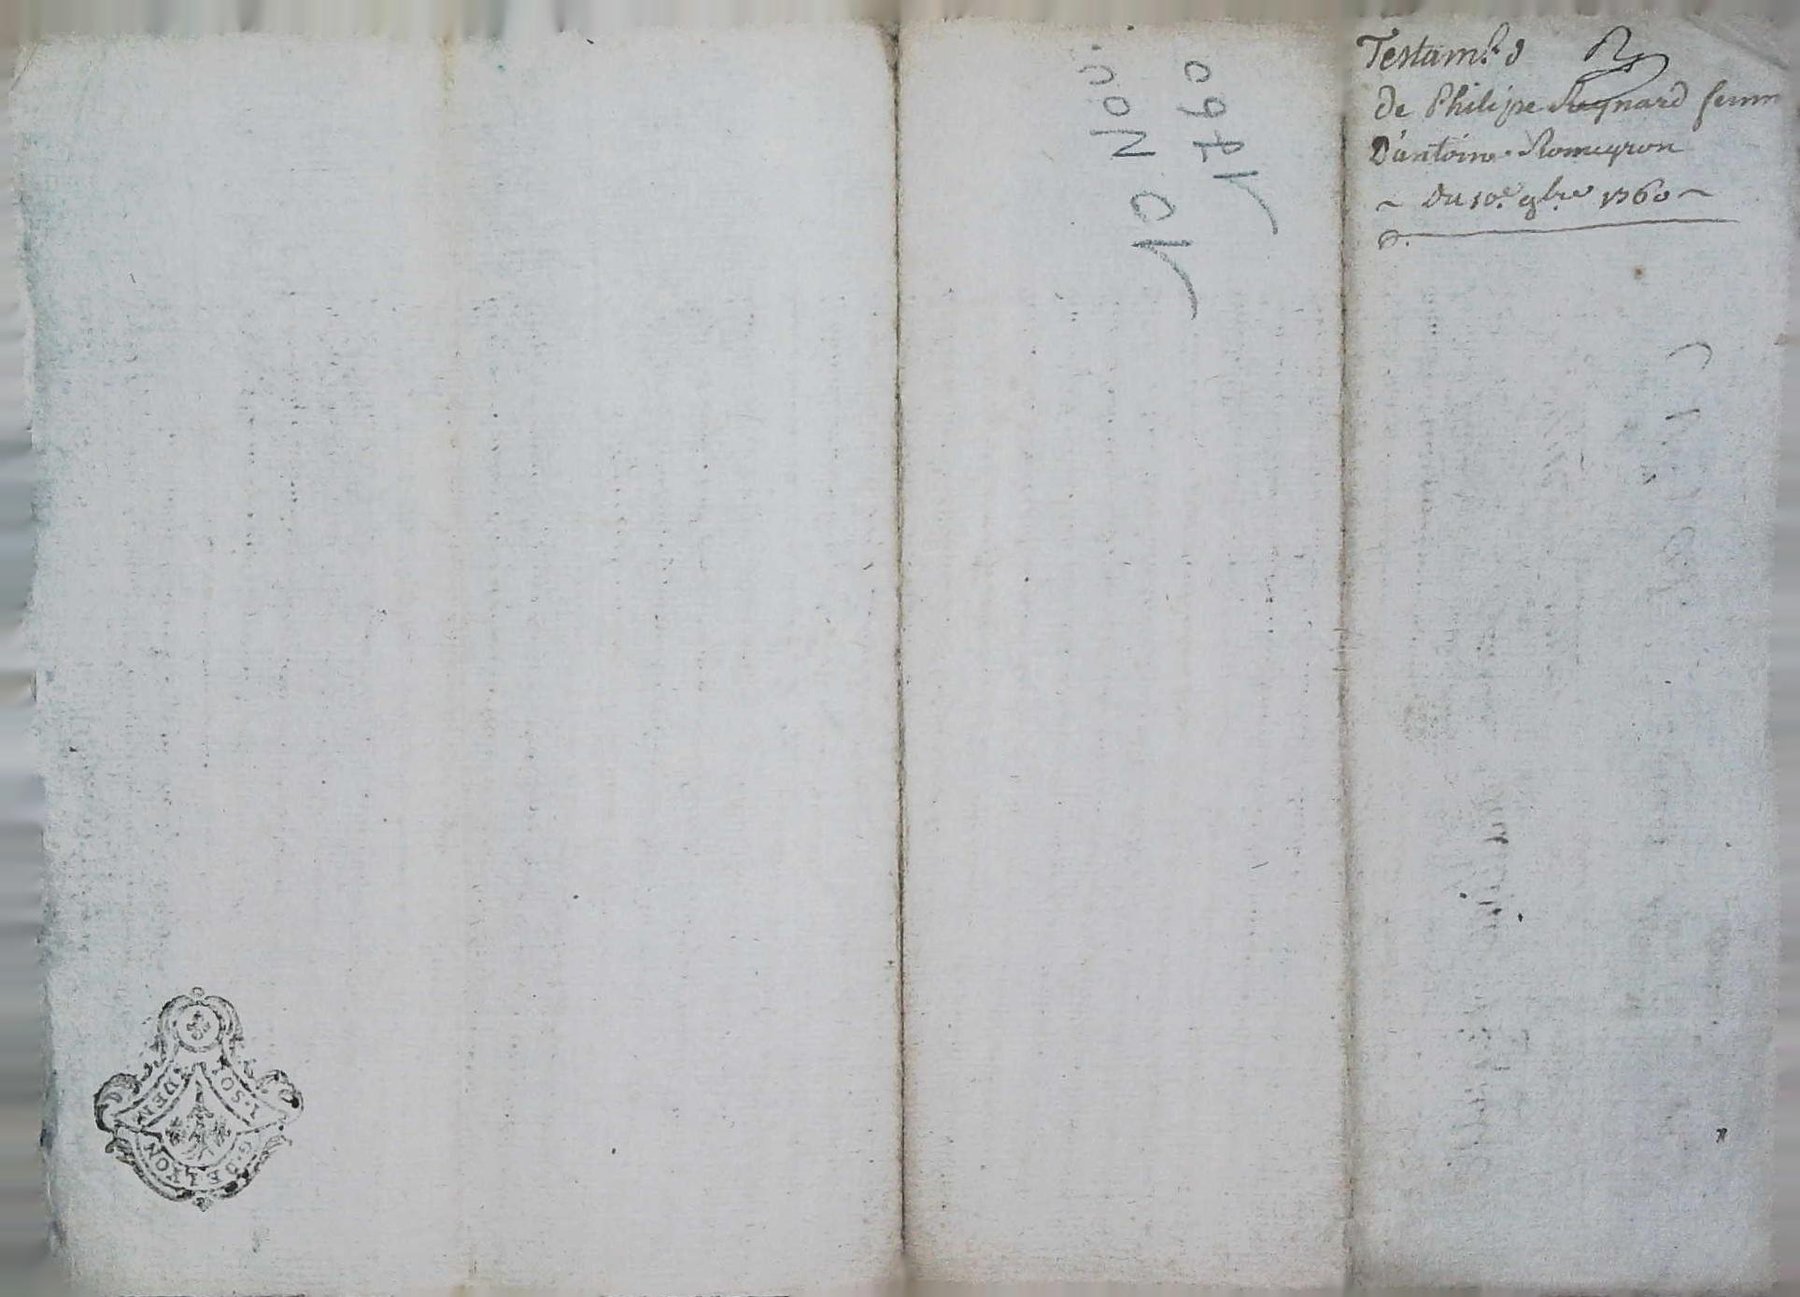 Testam.t
de Philipe Reynard femm
D'antoine Romeyron
~ Du 10.e 9bre 1760 ~
10 Nov.
1760
I·SOL
DEM
G·DE LYON